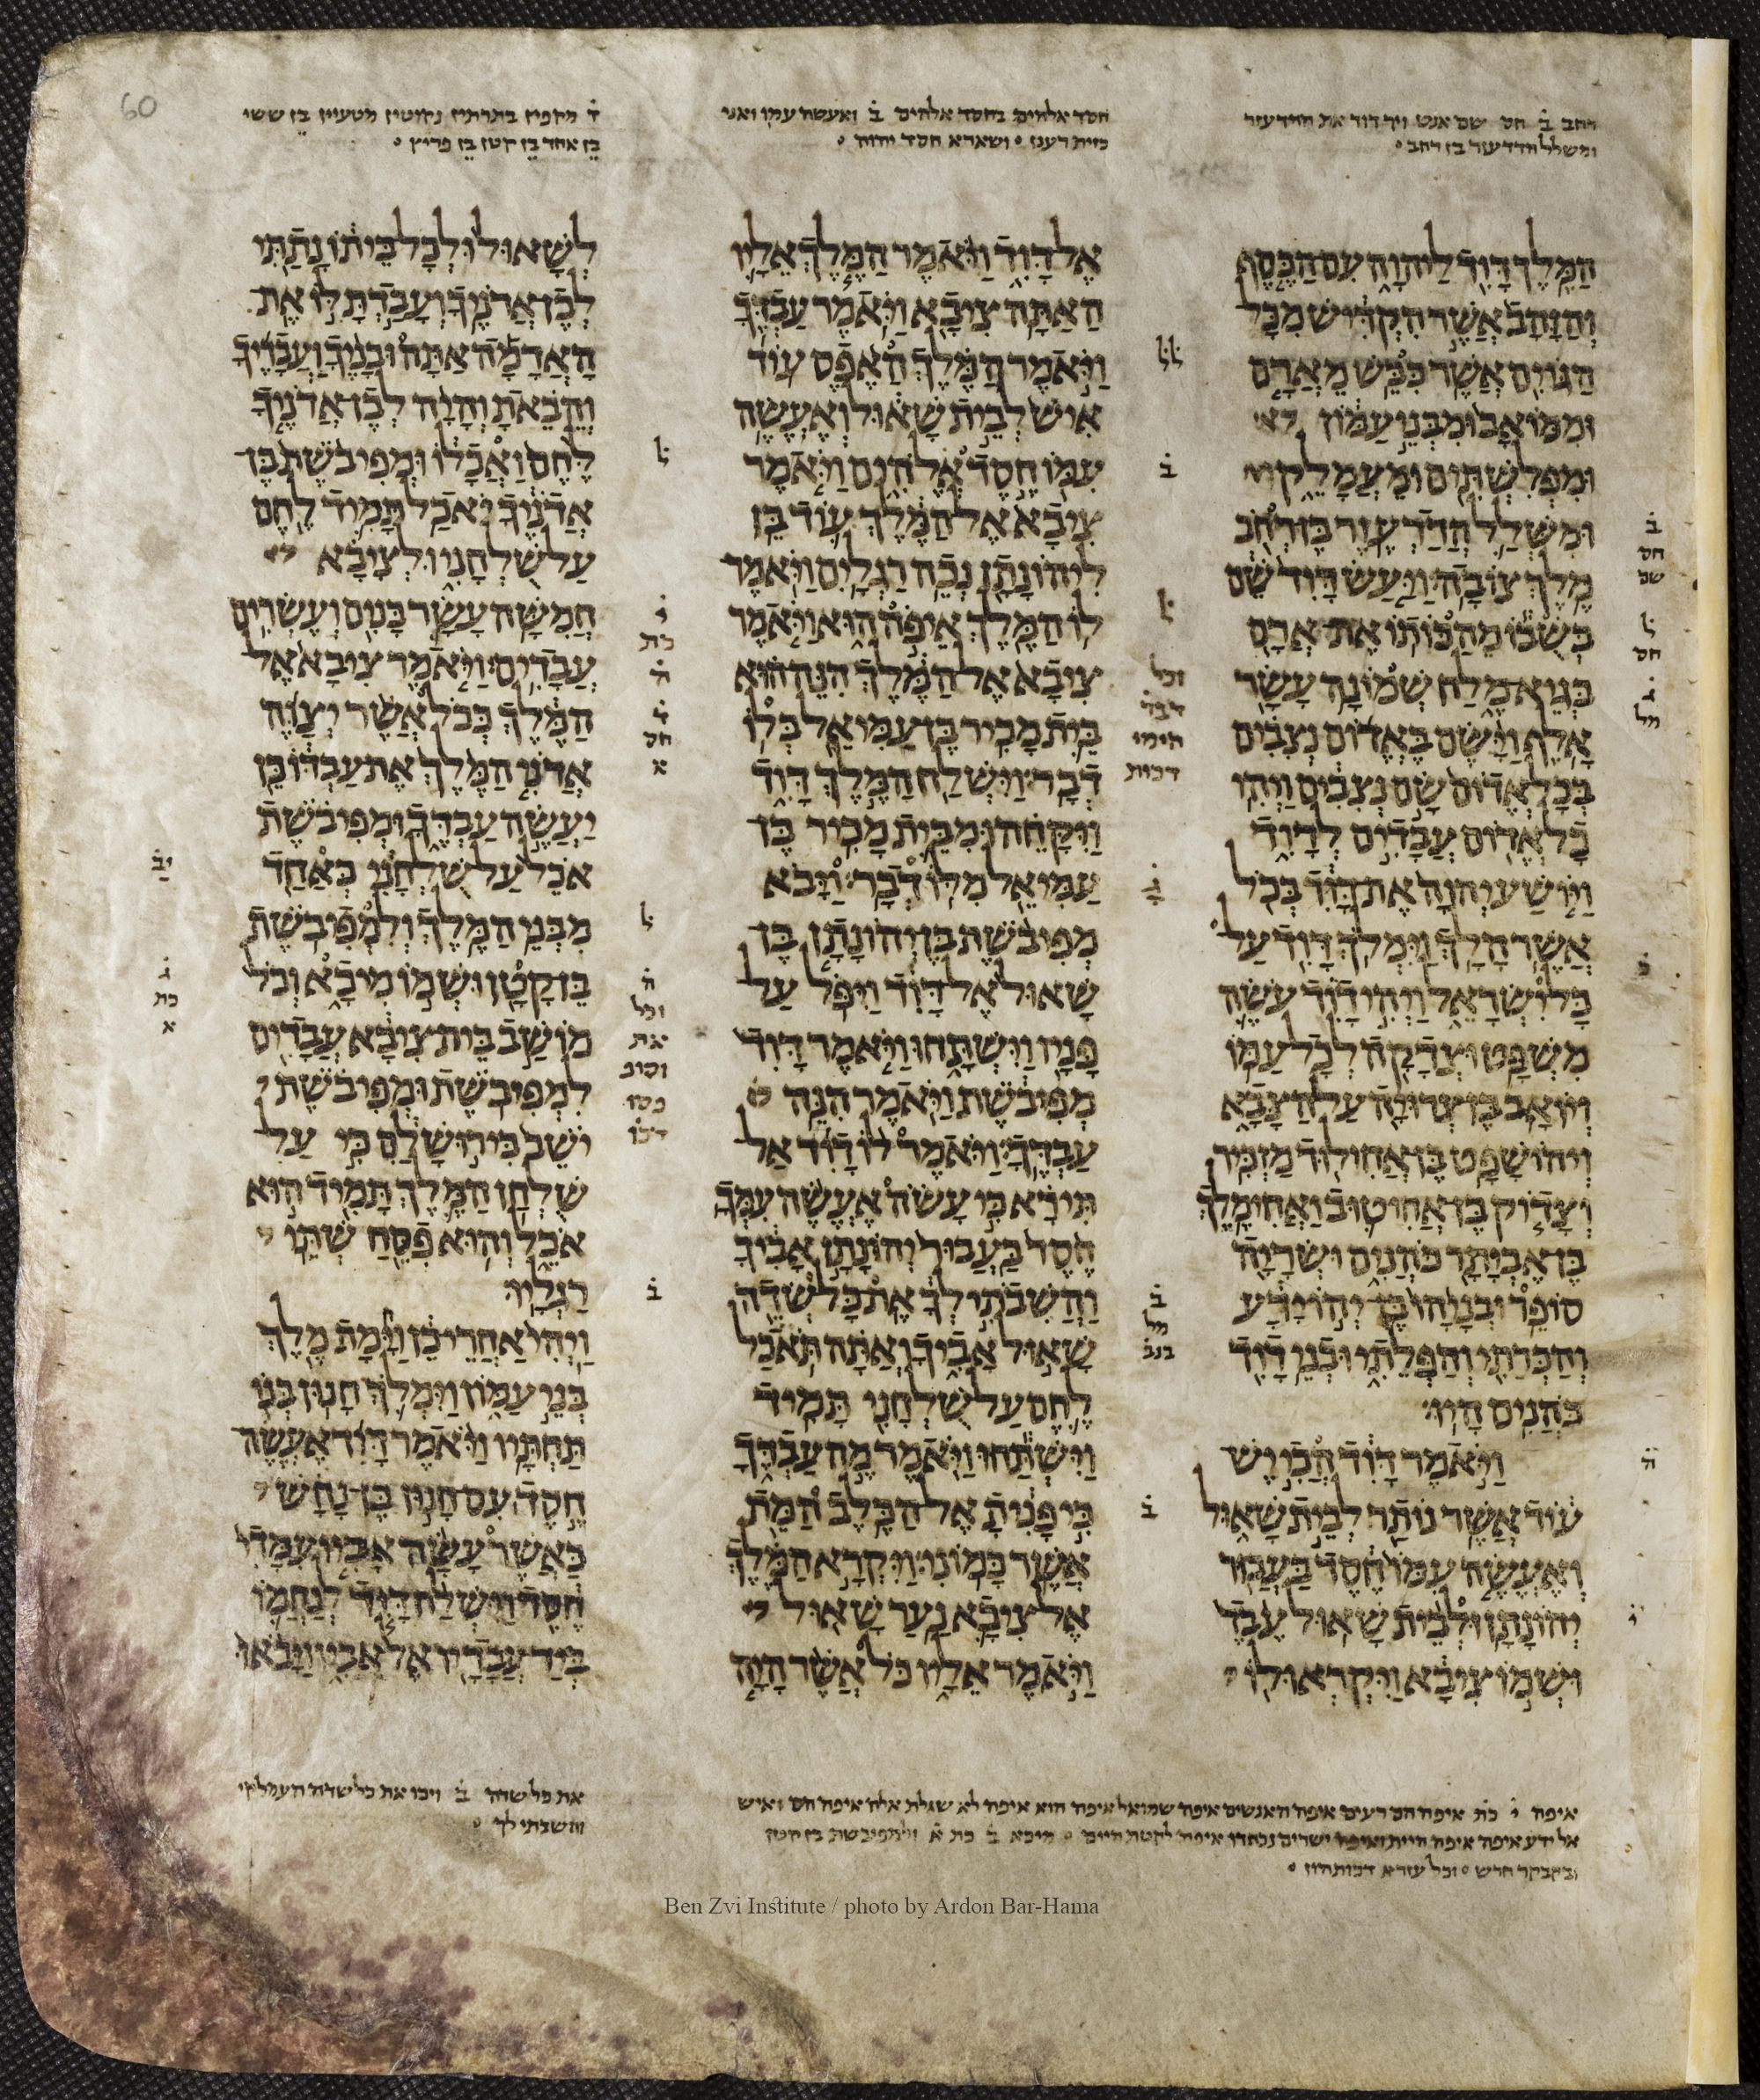 60
רחב ב חס שם אנט ויך דוד את הדדעזר
ומשלל הדדעזר בן רחב
חסד אלהים בחסד אלהים ב ואעשה עמו ואני
כזית רענן ושארא חסד יהוה
בן אחד בן קטן בן פריץ
הַמֶּלֶךְ דָּוִד לַיהוָה עִם הַכֶּסֶף
וְהַזָּהָב אֲשֶׁר הִקְדִּישׁ מִכָּל
הַגּוֹיִם אֲשֶׁר כִּבֵּשׁ מֵאֲרָם
וּמִמּוֹאָב וּמִבְּנֵי עַמּוֹן
וּמִפְּלִשְׁתִּים וּמֵעֲמָלֵק
וּמִשְּׁלַל הֲדַדְעֶזֶר בֶּן רְחֹב
מֶלֶךְ צוֹבָה וַיַּעַשׂ דָּוִד שֵׁם
בְּשֻׁבוֹ מֵהַכּוֹתוֹ אֶת אֲרָם
בְּגֵיא מֶלַח שְׁמוֹנָה עָשָׂר
אָלֶף וַיָּשֶׂם בֶּאֱדוֹם נְצִבִים
בְּכָל אֱדוֹם שָׂם נְצִבִים וַיְהִי
כָל אֱדוֹם עֲבָדִים לְדָוִד
וַיּוֹשַׁע יְהוָה אֶת דָּוִד בְּכֹל
אֲשֶׁר הָלָךְ וַיִּמְלֹךְ דָּוִד עַל
כָּל יִשְׂרָאֵל וַיְהִי דָוִד עֹשֶׂה
מִשְׁפָּט וּצְדָקָה לְכָל עַמּוֹ
וְיוֹאָב בֶּן צְרוּיָה עַל הַצָּבָא
וִיהוֹשָׁפָט בֶּן אֲחִילוּד מַזְכִּיר
וְצָדוֹק בֶּן אֲחִיטוּב וַאֲחִימֶלֶךְ
בֶּן אֶבְיָתָר כֹּהֲנִים וּשְׂרָיָה
סוֹפֵר וּבְנָיָהוּ בֶּן יְהוֹיָדָע
וְהַכְּרֵתִי וְהַפְּלֵתִי וּבְנֵי דָוִד
כֹּהֲנִים הָיוּ
וַיֹּאמֶר דָּוִד הֲכִי יֶשׁ
עוֹד אֲשֶׁר נוֹתַר לְבֵית שָׁאוּל
וְאֶעֱשֶׂה עִמּוֹ חֶסֶד בַּעֲבוּר
יְהוֹנָתָן וּלְבֵית שָׁאוּל עֶבֶד
וּשְׁמוֹ צִיבָא וַיִּקְרְאוּ לוֹ
אֶל דָּוִד וַיֹּאמֶר הַמֶּלֶךְ אֵלָיו
הַאַתָּה צִיבָא וַיֹּאמֶר עַבְדֶּךָ
וַיֹּאמֶר הַמֶּלֶךְ הַאֶפֶס עוֹד
אִישׁ לְבֵית שָׁאוּל וְאֶעֱשֶׂה
עִמּוֹ חֶסֶד אֱלֹהִים וַיֹּאמֶר
צִיבָא אֶל הַמֶּלֶךְ עוֹד בֵּן
לִיהוֹנָתָן נְכֵה רַגְלָיִם וַיֹּאמֶר
לוֹ הַמֶּלֶךְ אֵיפֹה הוּא וַיֹּאמֶר
צִיבָא אֶל הַמֶּלֶךְ הִנֵּה הוּא
בֵּית מָכִיר בֶּן עַמִּיאֵל בְּלוֹ
דְבָר וַיִּשְׁלַח הַמֶּלֶךְ דָּוִד
וַיִּקָּחֵהוּ מִבֵּית מָכִיר בֶּן
עַמִּיאֵל מִלּוֹ דְבָר וַיָּבֹא
מְפִיבֹשֶׁת בֶּן יְהוֹנָתָן בֶּן
שָׁאוּל אֶל דָּוִד וַיִּפֹּל עַל
פָּנָיו וַיִּשְׁתָּחוּ וַיֹּאמֶר דָּוִד
מְפִיבֹשֶׁת וַיֹּאמֶר הִנֵּה
עַבְדֶּךָ וַיֹּאמֶר לוֹ דָוִד אַל
תִּירָא כִּי עָשֹׂה אֶעֱשֶׂה עִמְּךָ
חֶסֶד בַּעֲבוּר יְהוֹנָתָן אָבִיךָ
וַהֲשִׁבֹתִי לְךָ אֶת כָּל שְׂדֵה
שָׁאוּל אָבִיךָ וְאַתָּה תֹּאכַל
לֶחֶם עַל שֻׁלְחָנִי תָּמִיד
וַיִּשְׁתַּחוּ וַיֹּאמֶר מֶה עַבְדֶּךָ
כִּי פָנִיתָ אֶל הַכֶּלֶב הַמֵּת
אֲשֶׁר כָּמוֹנִי וַיִּקְרָא הַמֶּלֶךְ
אֶל צִיבָא נַעַר שָׁאוּל
וַיֹּאמֶר אֵלָיו כֹּל אֲשֶׁר הָיָה
לְשָׁאוּל וּלְכָל בֵּיתוֹ נָתַתִּי
לְבֶן אֲדֹנֶיךָ וְעָבַדְתָּ לּוֹ אֶת
הָאֲדָמָה אַתָּה וּבָנֶיךָ וַעֲבָדֶיךָ
וְהֵבֵאתָ וְהָיָה לְבֶן אֲדֹנֶיךָ
לֶּחֶם וַאֲכָלוֹ וּמְפִיבֹשֶׁת בֶּן
אֲדֹנֶיךָ יֹאכַל תָּמִיד לֶחֶם
עַל שֻׁלְחָנִי וּלְצִיבָא
חֲמִשָּׁה עָשָׂר בָּנִים וְעֶשְׂרִים
עֲבָדִים וַיֹּאמֶר צִיבָא אֶל
הַמֶּלֶךְ כְּכֹל אֲשֶׁר יְצַוֶּה
אֲדֹנִי הַמֶּלֶךְ אֶת עַבְדּוֹ כֵּן
יַעֲשֶׂה עַבְדֶּךָ וּמְפִיבֹשֶׁת
אֹכֵל עַל שֻׁלְחָנִי כְּאַחַד
מִבְּנֵי הַמֶּלֶךְ וְלִמְפִיבֹשֶׁת
בֵּן קָטָן וּשְׁמוֹ מִיכָא וְכֹל
מוֹשַׁב בֵּית צִיבָא עֲבָדִים
לִמְפִיבֹשֶׁת וּמְפִיבֹשֶׁת
יֹשֵׁב בִּירוּשָׁלַ͏ִם כִּי עַל
שֻׁלְחַן הַמֶּלֶךְ תָּמִיד הוּא
אֹכֵל וְהוּא פִּסֵּחַ שְׁתֵּי
רַגְלָיו
וַיְהִי אַחֲרֵי כֵן וַיָּמָת מֶלֶךְ
בְּנֵי עַמּוֹן וַיִּמְלֹךְ חָנוּן בְּנוֹ
תַּחְתָּיו וַיֹּאמֶר דָּוִד אֶעֱשֶׂה
חֶסֶד עִם חָנוּן בֶּן נָחָשׁ
כַּאֲשֶׁר עָשָׂה אָבִיו עִמָּדִי
חֶסֶד וַיִּשְׁלַח דָּוִד לְנַחֲמוֹ
בְּיַד עֲבָדָיו אֶל אָבִיו וַיָּבֹאוּ
את כל שדה ב ויכו את כל שדה העמלקי
והשבתי לך
Ben Zvi Institute / photo by Ardon Bar-Hama